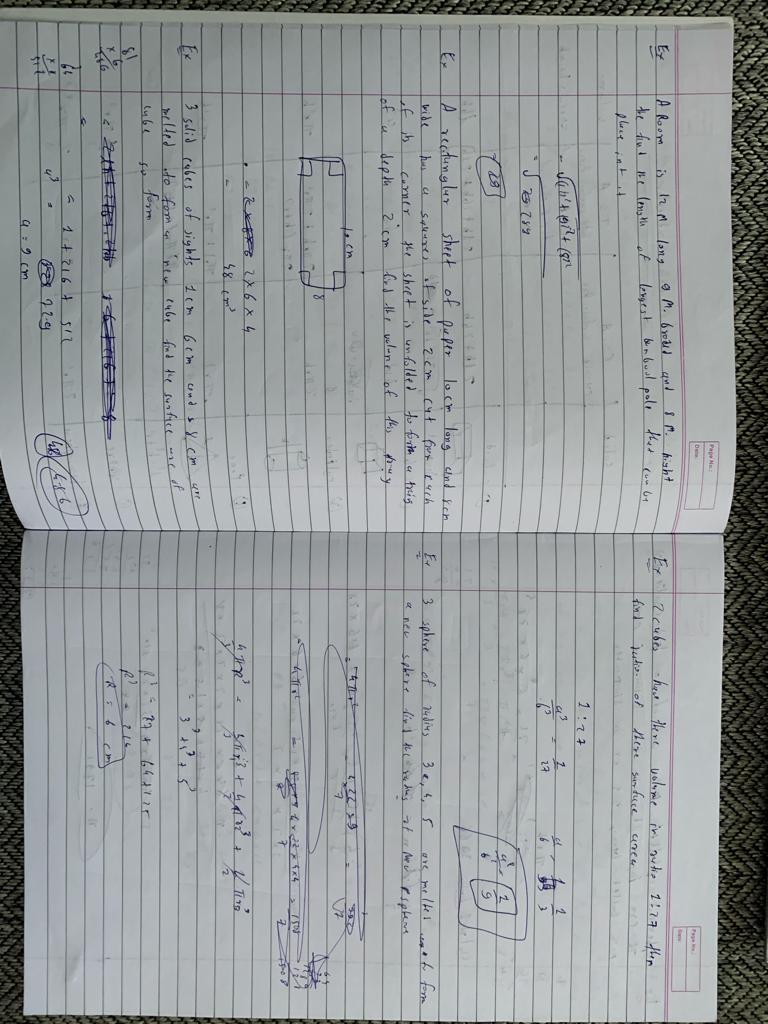 Page No.:
Date:
Ex A Room is 12 M. long 9 M. broad and 8 M. hight
the find the length of longest bamboo pole that can be
place in it
= √(12)² + (9)² + (8)²
= √ 289
√29
Ex A rectangular sheet of paper 10cm long and 8cm
wide has a squares of side 2 cm cut from each
of its corner the sheet is unfolded to form a tray
of a depth 2 cm find the volume of this tray
10 cm
8
= 2 × 6 × 4
= 48 cm³
Ex 3 solid cubes of sights 1 cm 6 cm and 8 cm are
melted to form a new cube find the surface are of
cube so form
81
× 6
486
= 1 + 216 + 512
a³ = 729
a = 9 cm
486
Page No.:
Date:
Ex 2 cubes have there volume in ratio 1:27 then
find ratio of there surface area
1:27
a³/b³ = 1/27 a/b = 1/3
a²/b² = 1/9
Ex 3 sphere of radius 3, 4, 5 are melted to form
a new sphere find the radius of new sphere
= 3³ + 4³ + 5³
R³ = 27 + 64 + 125
R³ = 216
R = 6 cm